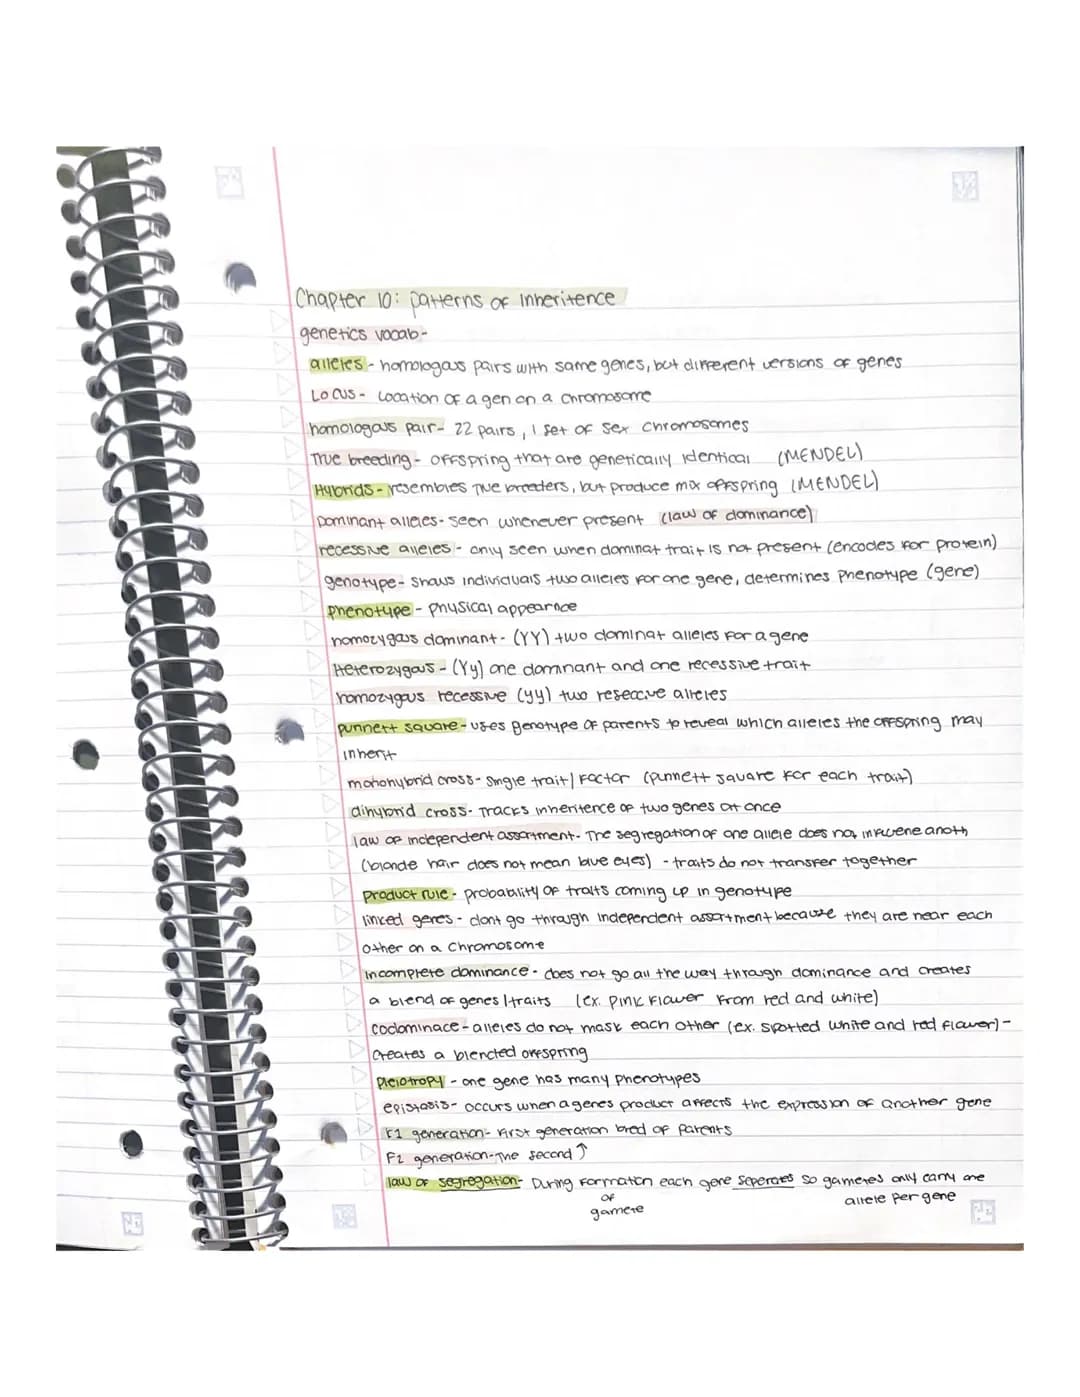 Chapter 10: patterns of Inheritence
genetics vocab-
alleles - homologous pairs with same genes, but different versions of genes
Locus - Location of a gen on a chromosome
homologous pair- 22 pairs, 1 set of sex chromosomes
True breeding - offspring that are genetically identical (MENDEL)
Hybrids - resembles true breeders, but produce mix offspring (MENDEL)
Dominant alleles- seen whenever present (law of dominance)
recessive alleles - only seen when dominat trait is not present (encodes for protein)
genotype- shows individuals two alleles for one gene, determines phenotype (gene)
phenotype - physical appearnce
homozygous dominant- (YY) two dominat alleles for a gene
Heterozygous - (Yy) one dominant and one recessive trait
homozygous recessive (yy) two reseccive alleles
punnett square- uses genotype of parents to reveal which alleles the offspring may
inherit
monohybrid cross- single trait/factor (punnett square for each trait)
dihybrid cross- Tracks inheritence of two genes at once
law of independent assortment- The segregation of one allele does not anoth
(blonde hair does not mean blue eyes) - traits do not transfer together
product rule - probability of traits coming up in genotype
linked genes - dont go through independent assortment because they are near each
other on a chromosome
incomplete dominance - does not go all the way through dominance and creates
a blend of genes/traits (ex. pink flower from red and white)
codominace - alleles do not mask each other (ex. spotted white and red flower) -
creates a blended offspring
pleiotropy - one gene has many phenotypes
epistasis- occurs when a genes product affects the expression of another gene
F1 generation- first generation bred of parents
F2 generation- The second ↑
law of segregation- During formation each gene seperates so gametes only carry one
of allele per gene
gamete